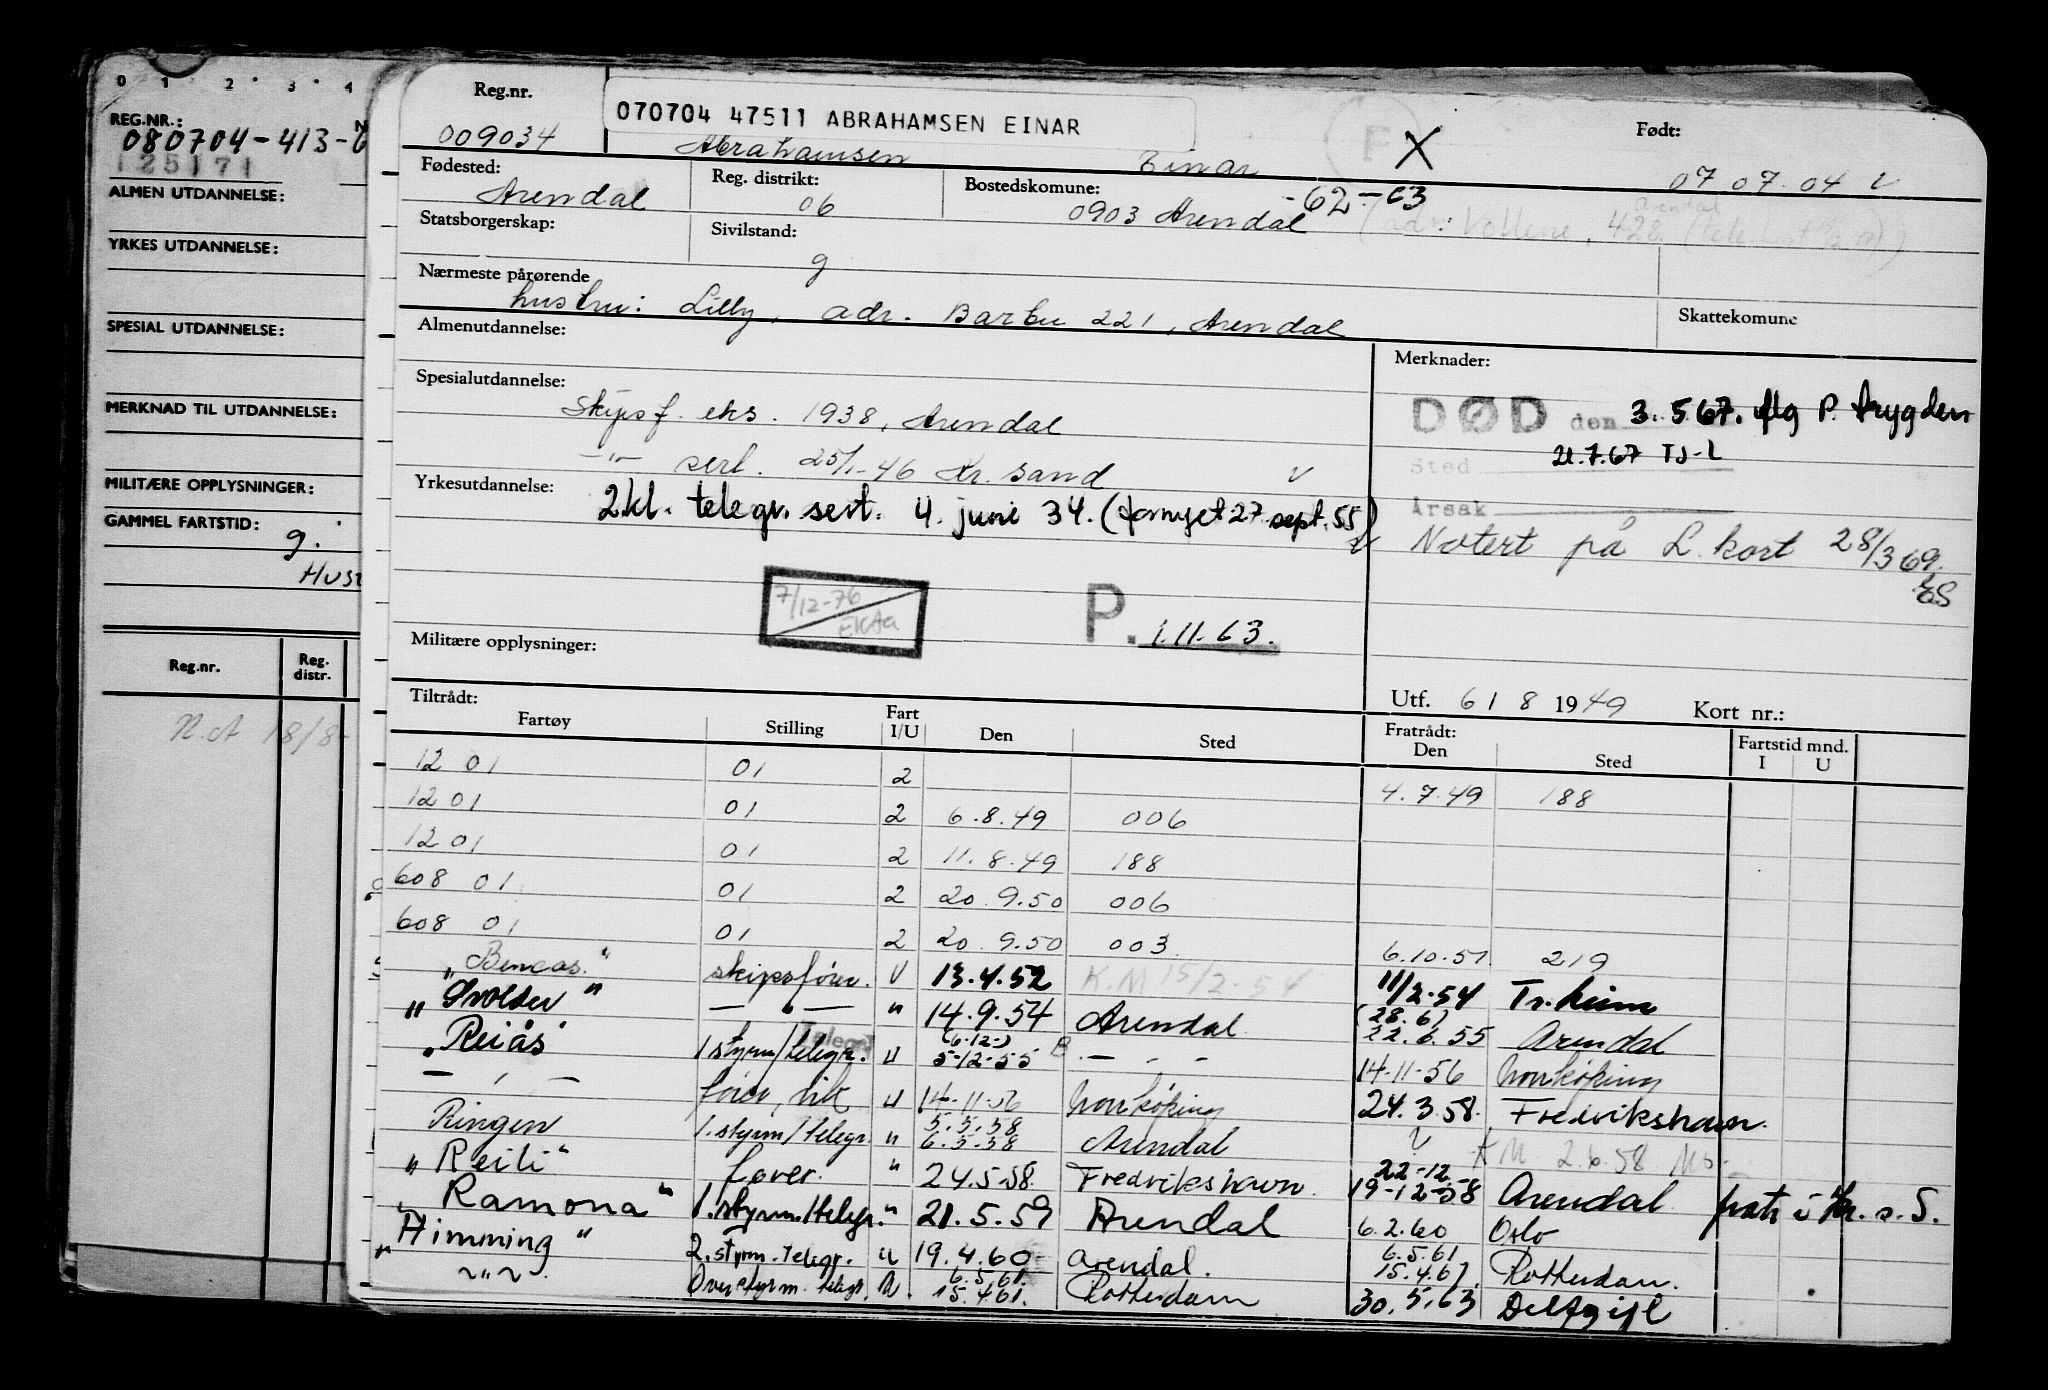 0 1 2 3 4
REG.NR.:
080704-413-
25171
ALMEN UTDANNELSE:
YRKES UTDANNELSE:
SPESIAL UTDANNELSE:
MERKNAD TIL UTDANNELSE:
MILITÆRE OPPLYSNINGER:
GAMMEL FARTSTID:
g.
Reg.nr. Reg. distr.
N.A 18/8-
Reg.nr. 070704 47511 ABRAHAMSEN EINAR F X Født:
009034 Abrahamsen Einar 07 07.04 v
Fødested: Arendal Reg. distrikt: 06 Bostedskomune: 0903 Arendal -62-63
Arendal
(adr: Vollene, 428
Statsborgerskap: Sivilstand: g
Nærmeste pårørende
hustru: Lilly, adr. Barbu 221, Arendal Skattekomune
Almenutdannelse: Merknader:
Spesialutdannelse:
Skipsf. eks. 1938, Arendal
-"- sert. 25/1-46 Kr. sand v
DØD den 3.5 67. flg P. trygden
Sted 21.7.67 TJ-L
Årsak
Yrkesutdannelse:
2.kl. telegr. sert. 4. juni 34. (fornyet 27 sept. 55) v
Notert på L. kort 28/3 69.
ES
7/12-76
EKAa
P. 1.11.63.
Militære opplysninger:
Utf. 6 / 8 1949 Kort nr.:
Tiltrådt: Fratrådt: Fartstid mnd.
Fartøy Stilling Fart I/U Den Sted Den Sted I U
12 01 01 2 4.7.49 188
12 01 01 2 6.8.49 006
12 01 01 2 11.8.49 188
608 01 01 2 20.9.50 006
608 01 01 2 20.9.50 003 6.10.51 219
"Bencas." skipsfører. U 13.4.52 K.M 15/2-54 11/2-54 Tr.heim
"Svolder" — " — " 14.9.54 Arendal (28.6) 22.6.55 Arendal
"Reiås" 1 styrm/telegr. U (6-12-) 5-12-55 — " — 14-11-56 Norrköping
— " — fører, U 14-11-56 Norrköping 24.3.58. Fredrikshavn.
Ringen 1.styrm/telegr. " 5.5.58 6.5.58 Arendal v K.M. 2.6.58
"Reili" fører. " 24.5.58. Fredrikshavn. 22-12 19-12-58 Arendal fratr i Kr.s.S.
"Ramona" 1.styrm./telegr. " 21.5.59 Arendal 6.2.60 Oslo
"Himming" 2.styrm. telegr. U 19.4.60 Arendal. 6.5.61 15.4.61. Rotterdam.
~"~ Overstyrm. telegr. U 6.5.61. 15.4.61. Rotterdam 30.5.63 Delfzijl